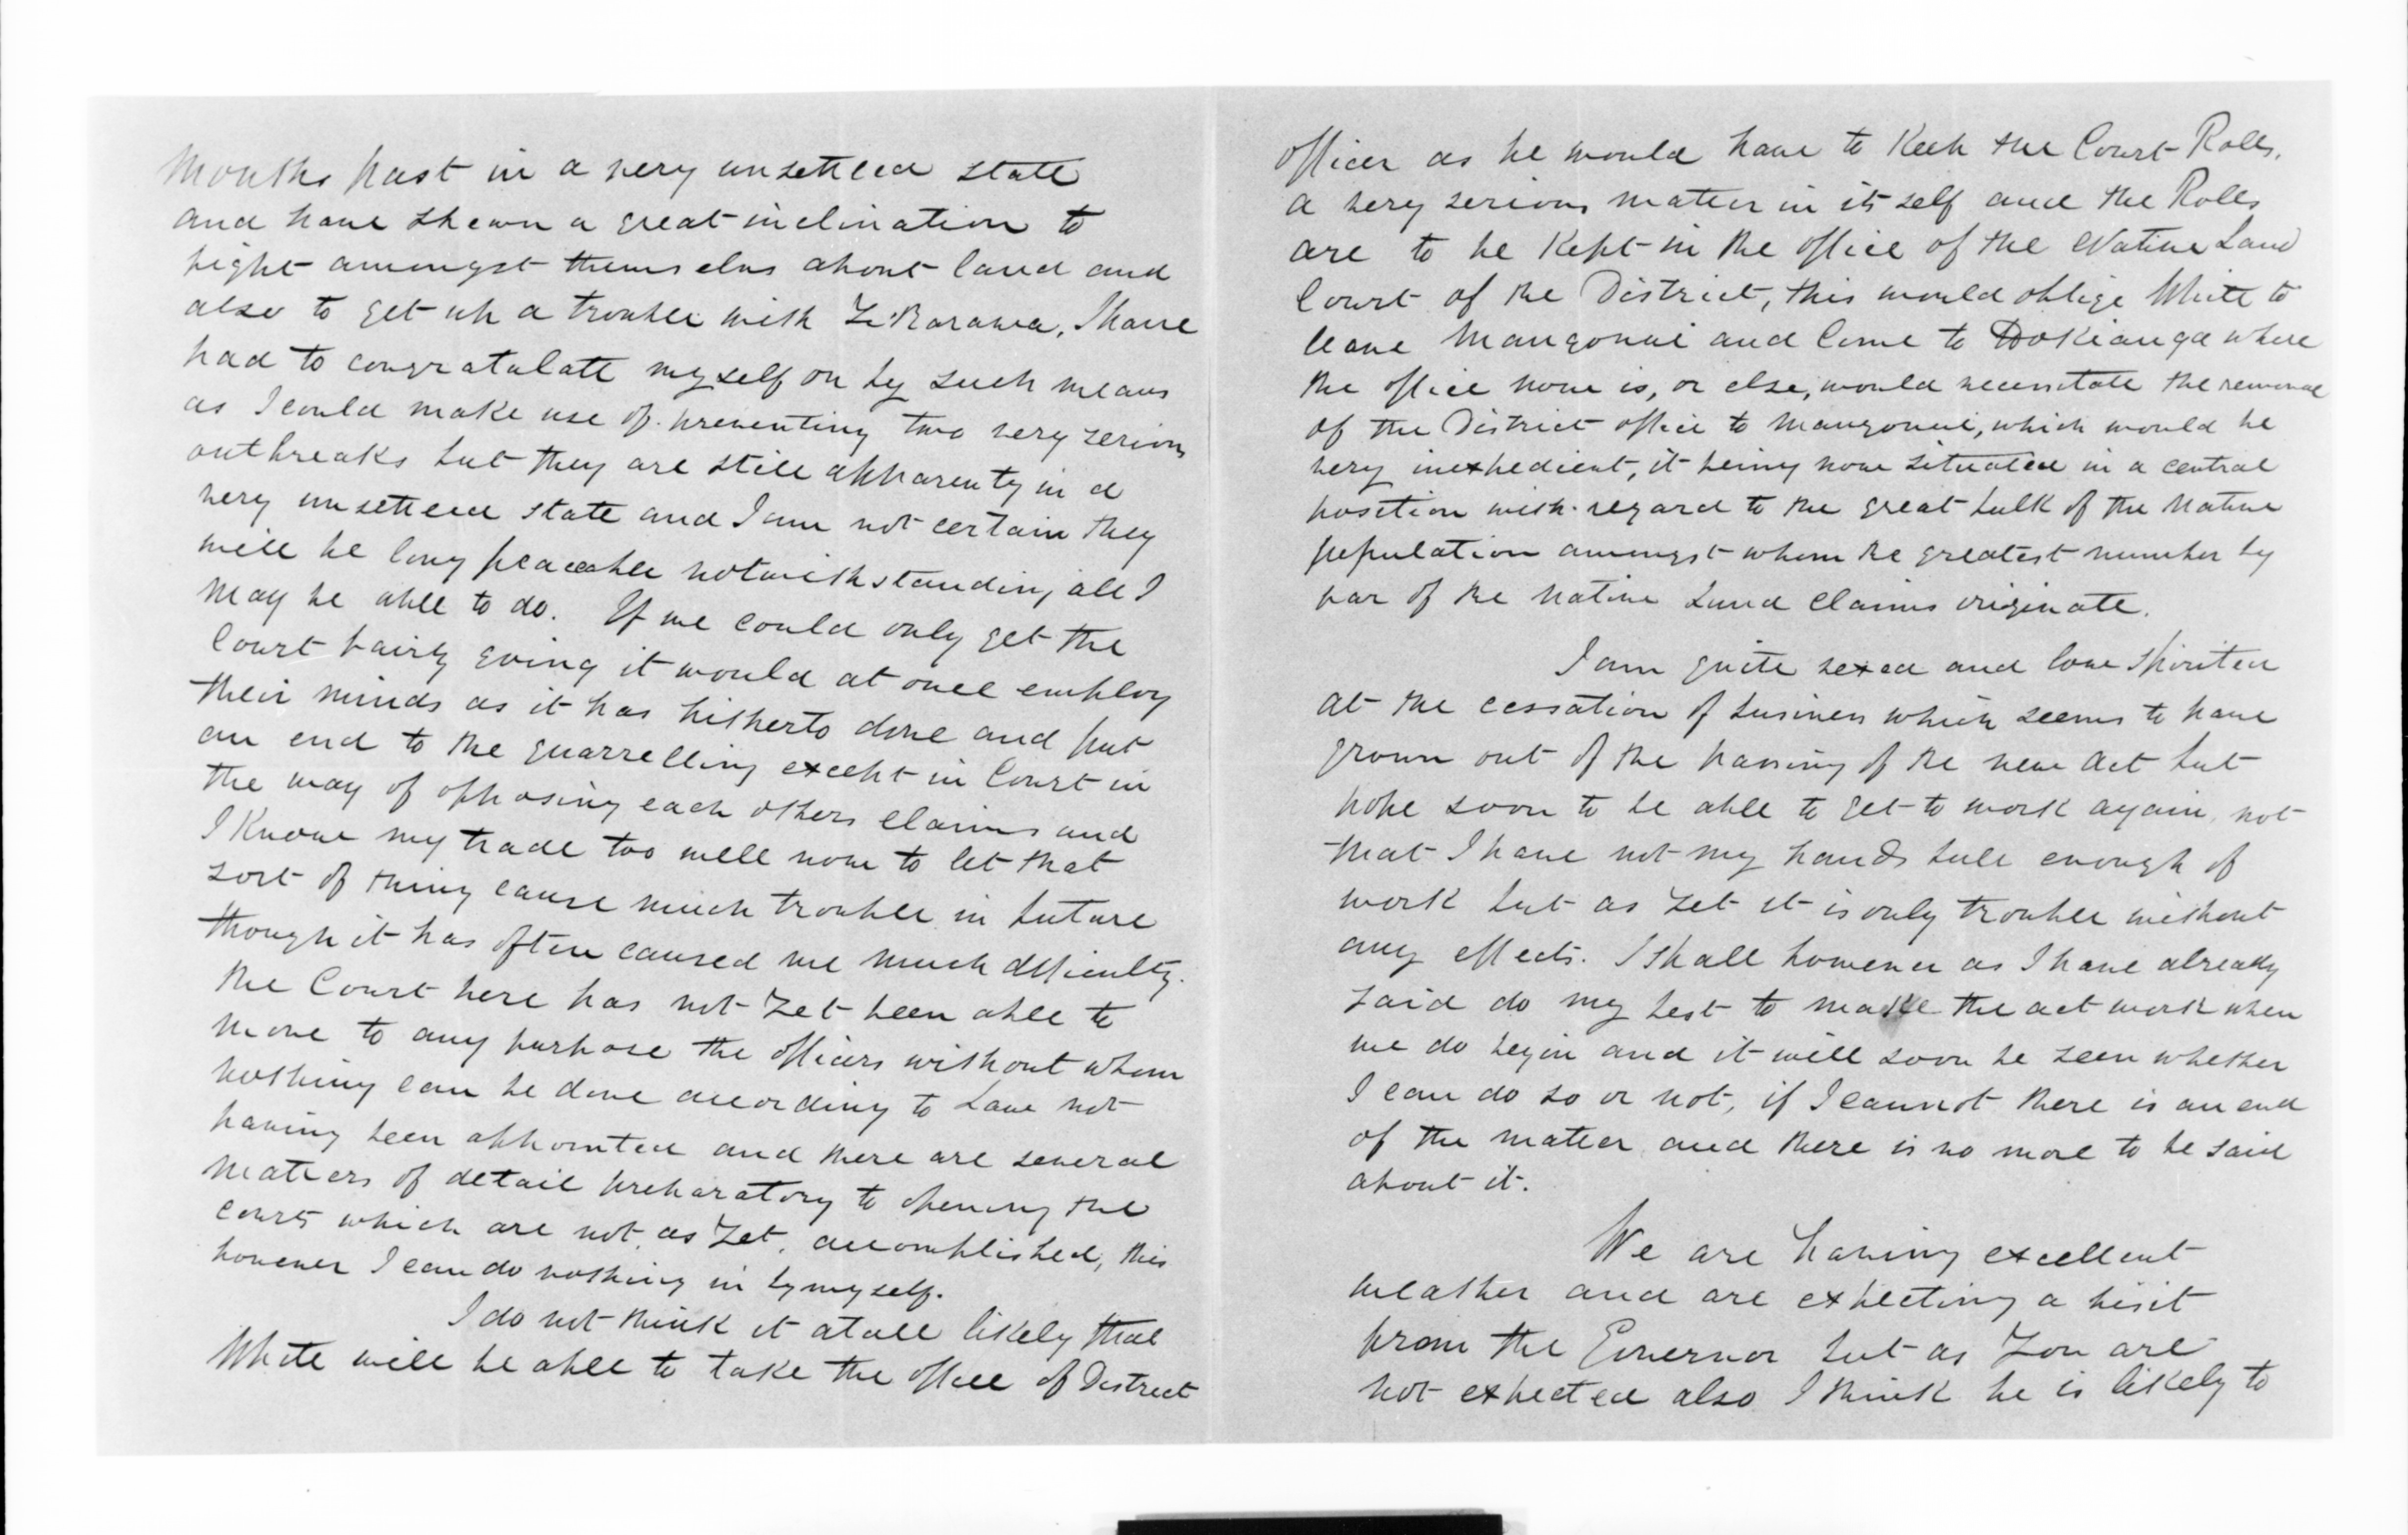 Months past in a very unsettled state
and have shewn a great inclination to
fight amongst themselves about land and
also to get up a trouble with Te Rarawa, I have
had to congratulate myself on by such means
as I could make use of preventing two very serious
outbreaks but they are still apparenty in a
very unsettled state and I am not certain they
will be long peaceable notwithstanding all I
may be able to do. If we could only get the
Court fairly going it would at once employ
their minds as it has hitherto done and put
an end to the quarrelling except in Court in
the way of opposing each others claims and
I know my trade too well now to let that
sort of thing cause much trouble in future
though it has often caused me much difficulty.
the Court here has not yet been able to
move to any purpose the officers without whom
nothing can be done according to Law not
having been appointed and there are several
matters of detail preparatory to opening the
courts which are not, as yet, accomplished, this
however I can do nothing in by myself.
I do not think it at all likely that
White will be able to take the office of District
officer as he would have to Keep the Court Rolls,
a very serious matter in itself and the Rolls
are to be Kept in the office of the Native Land
Court of the District, this would oblige White to
leave Mangonui and Come to Hokianga where
the office now is, or else, would necessitate the removal
of the District office to Mangonui, which would be
very inexpedient, it being now situated in a central
position with regard to the great bulk of the Native
population amongst whom the greatest number by
far of the Native Land Claims originate.
I am quite vexed and low Spirited
at the cessation of business which seems to have
grown out of the passing of the new Act but
hope soon to be able to get to work again, not
that I have not my hands full enough of
work but as yet it is only trouble without
any effects. I shall however as I have already
said do my best to make the act work when
we do begin and it will soon be seen whether
I can do so or not, if I cannot there is an end
of the matter and there is no more to be said
about it.
We are having excellent
weather and are expecting a visit
from the Governor but as you are
not expected also I think he is likely to